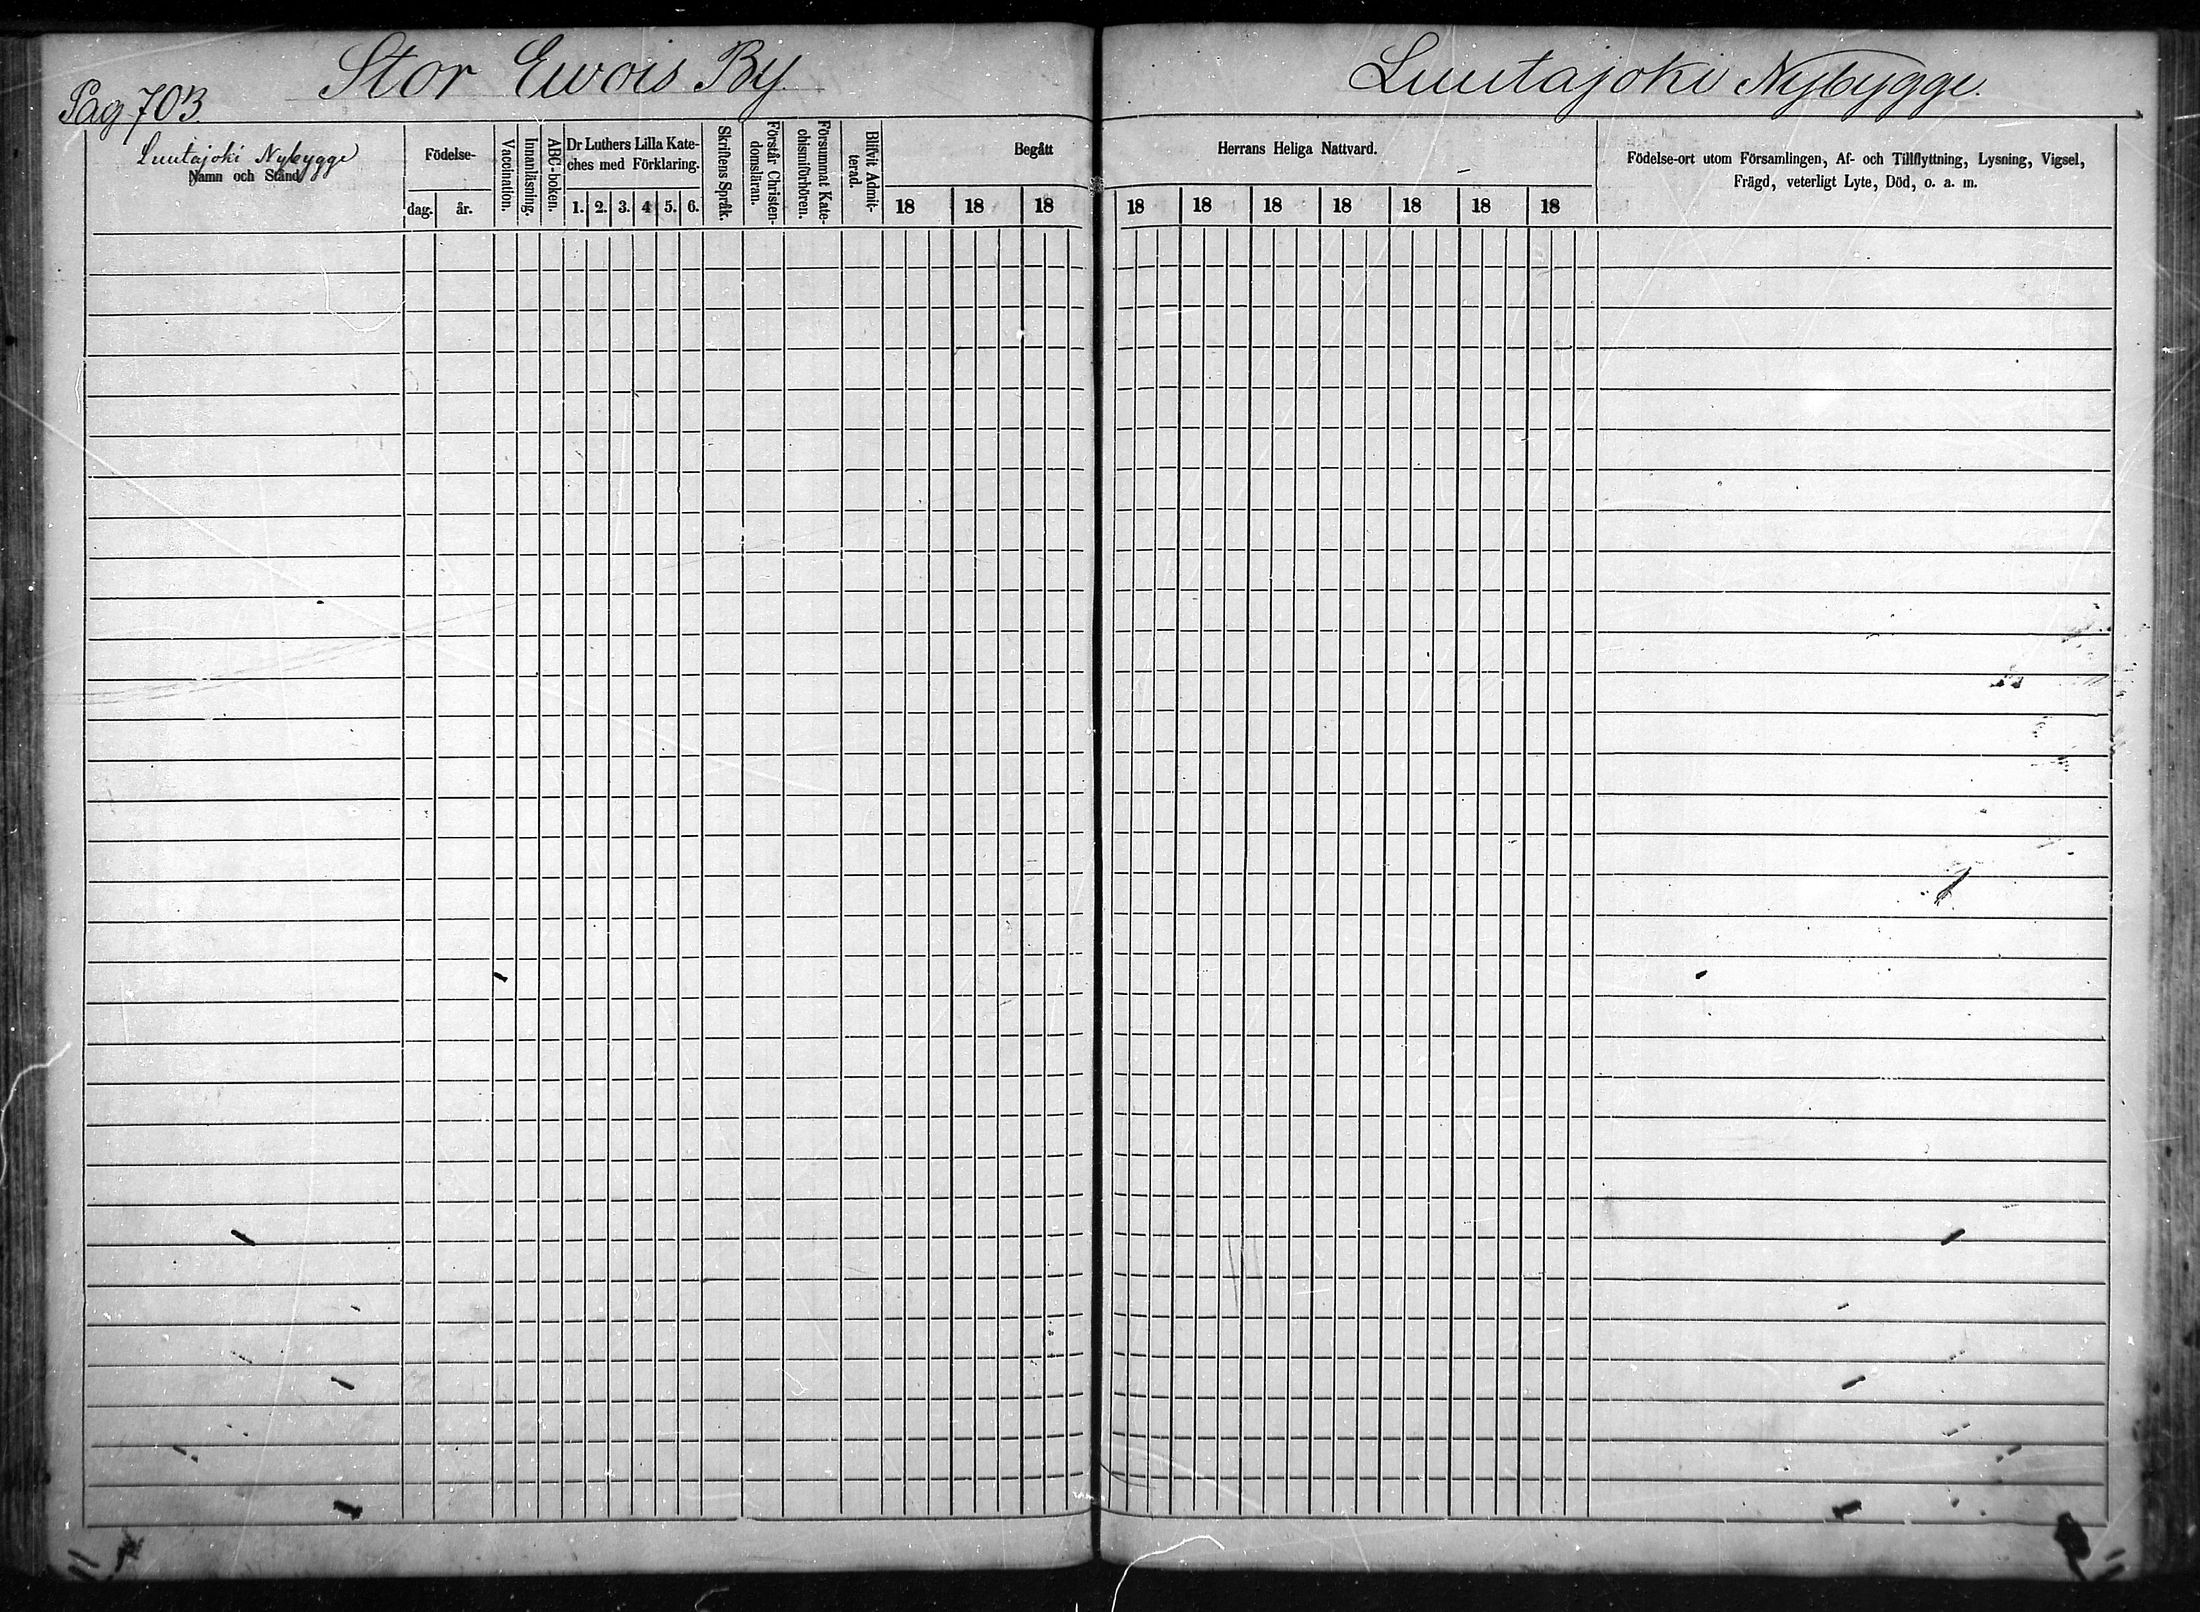 Stor Ewois By.
Luutajoki Nybygge.
Pag 703.
Luutajoki Nybygge
Namn och Stånd.
Födelse-
dag.
år.
Vaccination.
Innanläsning.
ABC-boken.
Dr Luthers Lilla Kate-
ches med Förklaring.
1. 2. 3. 4 5. 6.
Skriftens Språk.
Förstår Christen-
domsläran.
Försummat Kate-
chismiförhören.
Blifvit Admit-
terad.
Begått
18 18 18
Herrans Heliga Nattvard.
18 18 18 18 18 18 18
Födelse-ort utom Församlingen, Af- och Tillflyttning, Lysning, Vigsel,
Frägd, veterligt Lyte, Död, o. a. m.